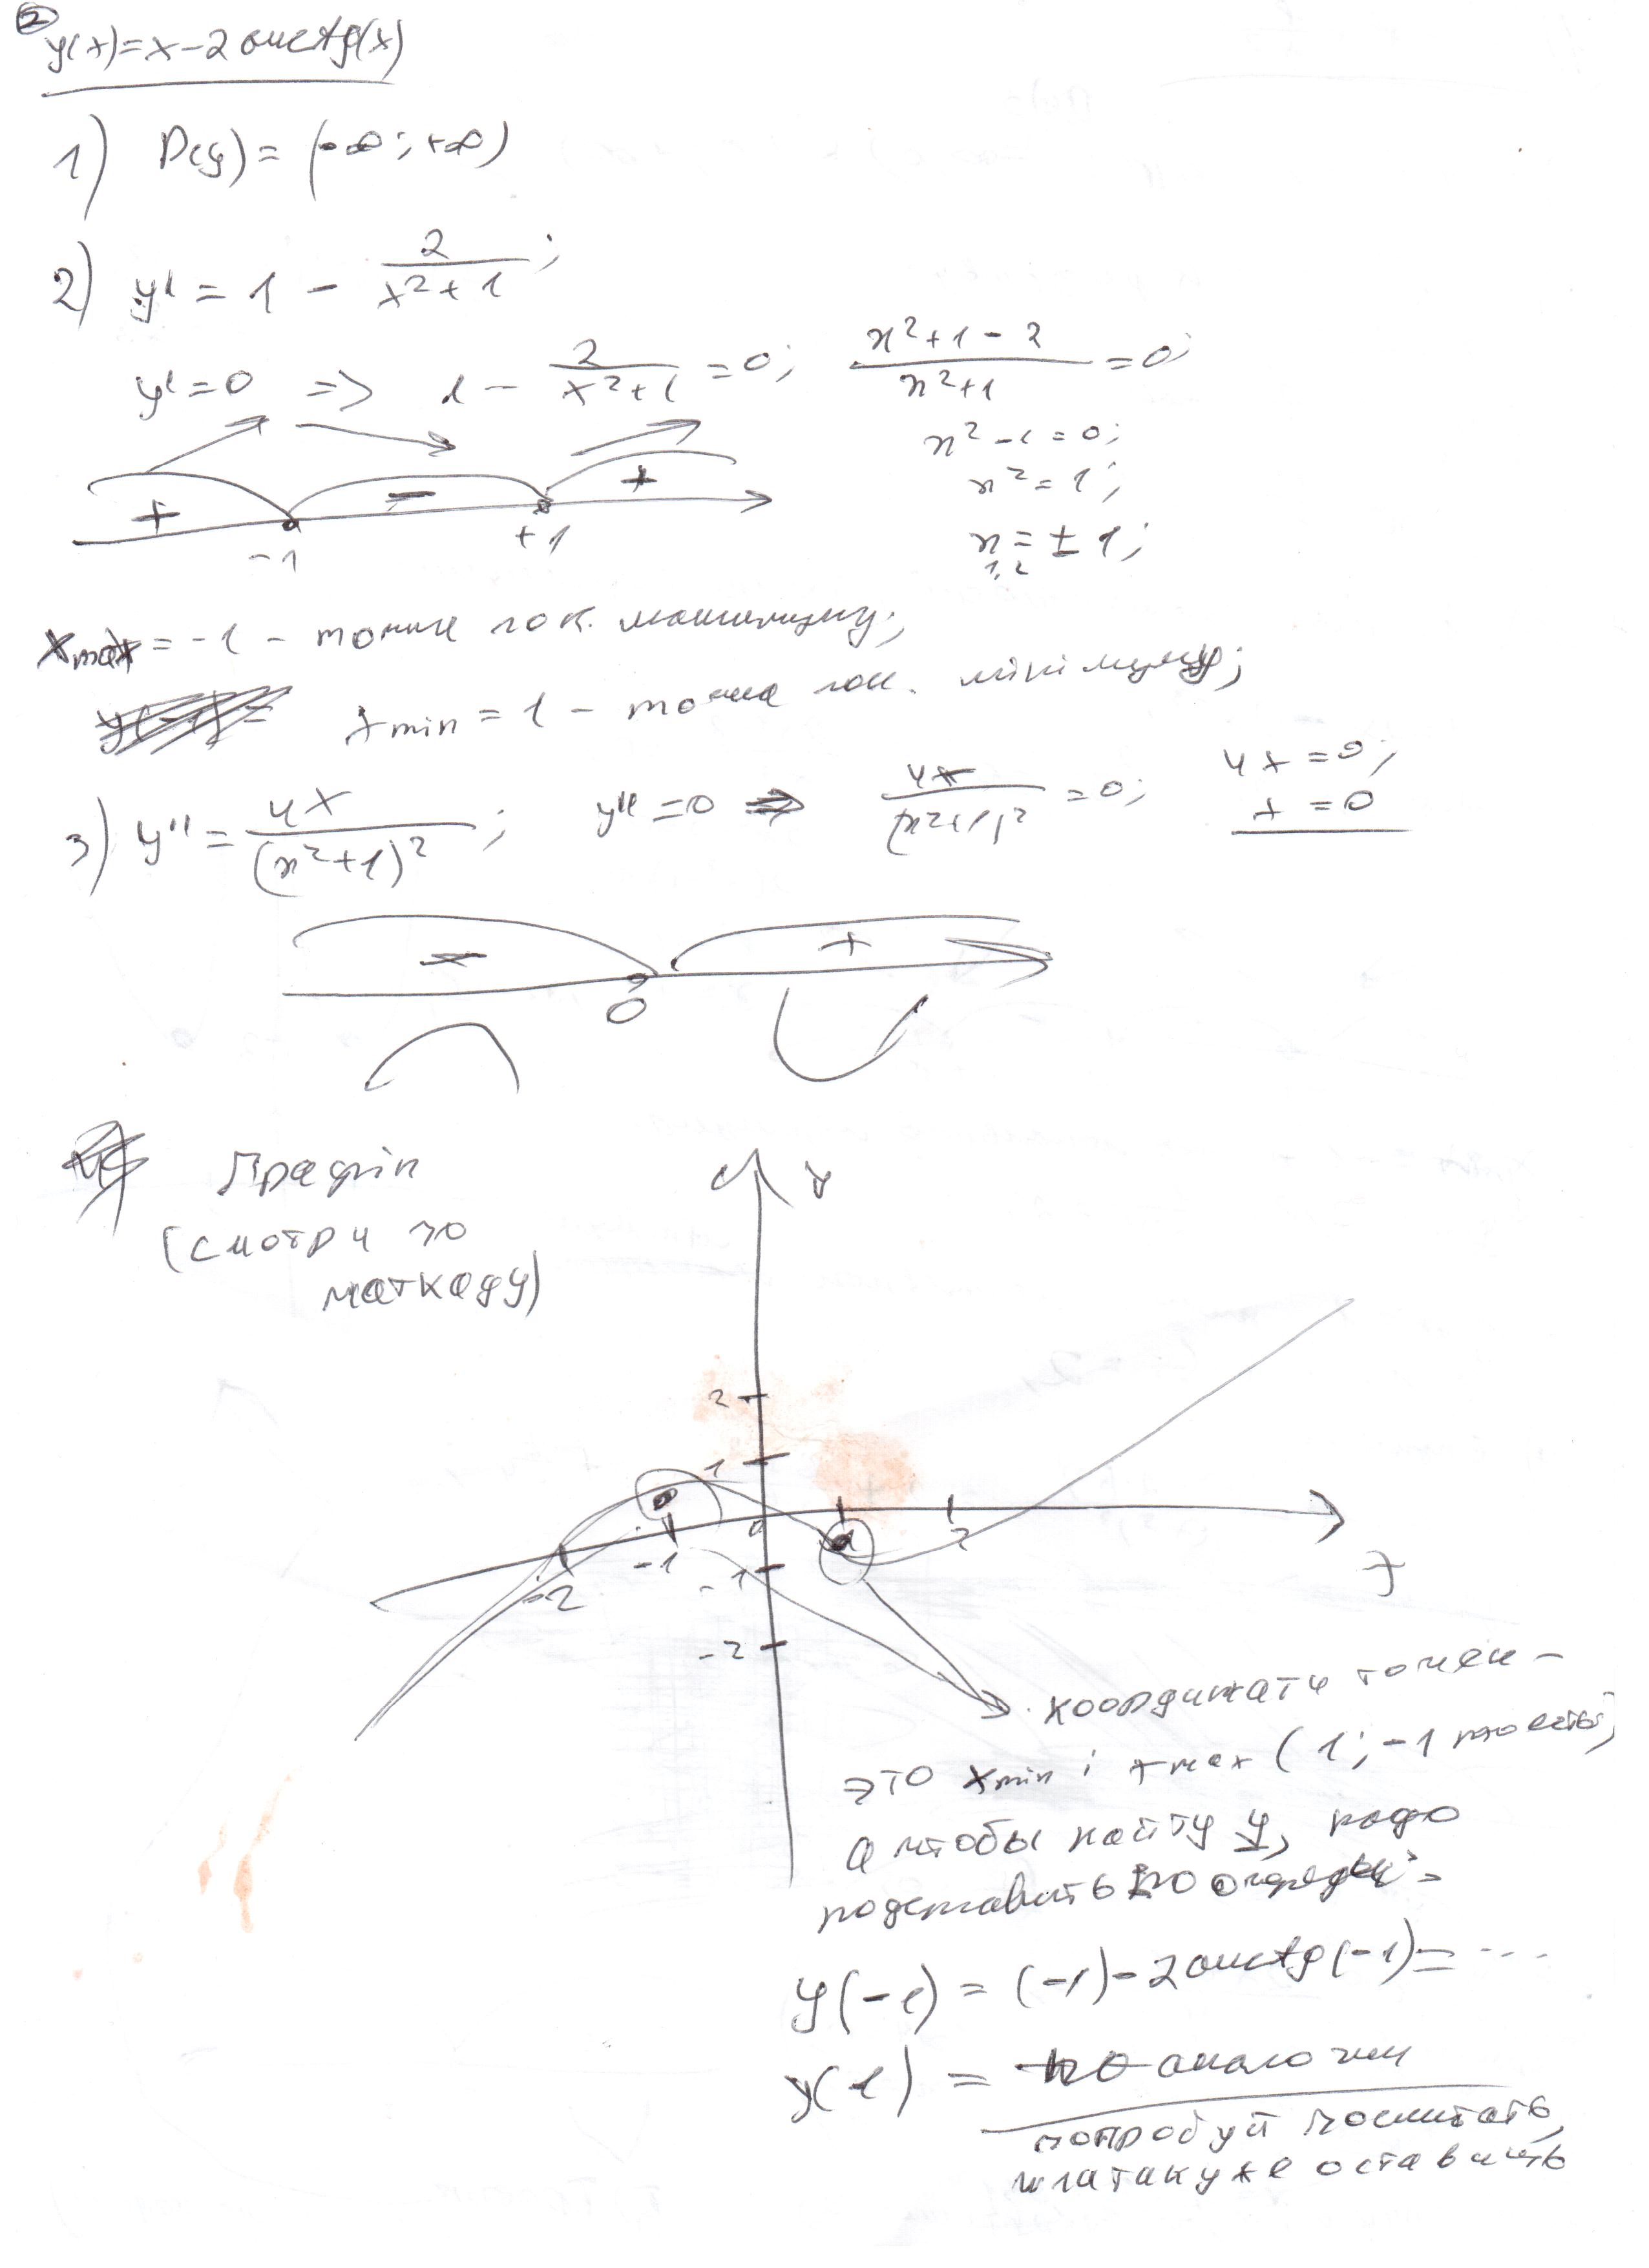 2
y(x)=x-2arctg(x)
1) D(y)=(-∞;+∞)
2) y' = 1 - 2/(x²+1);
y'=0 => 1 - 2/(x²+1) =0; (x²+1-2)/(x²+1) =0;
x²-1=0;
x²=1;
x1,2 = ±1;
+ - +
-1 +1
xmax=-1 - точка лок. максимуму;
xmin=1 - точка лок. мінімуму;
3) y''= 4x/(x²+1)²; y''=0 => 4x/(x²+1)² =0; 4x=0;
x=0
- +
0
Графік
(смотри по
маткаду)
y
2
1
-2 -1 0 2
-1
x
-2
координати точек -
это xmin і xmax (1; -1
а чтобы найту y, надо
подставить по
y(-1) = (-1)-2arctg(-1)= ...
y(1) = по аналогии
попробуй посчитать,
или так уже оставить